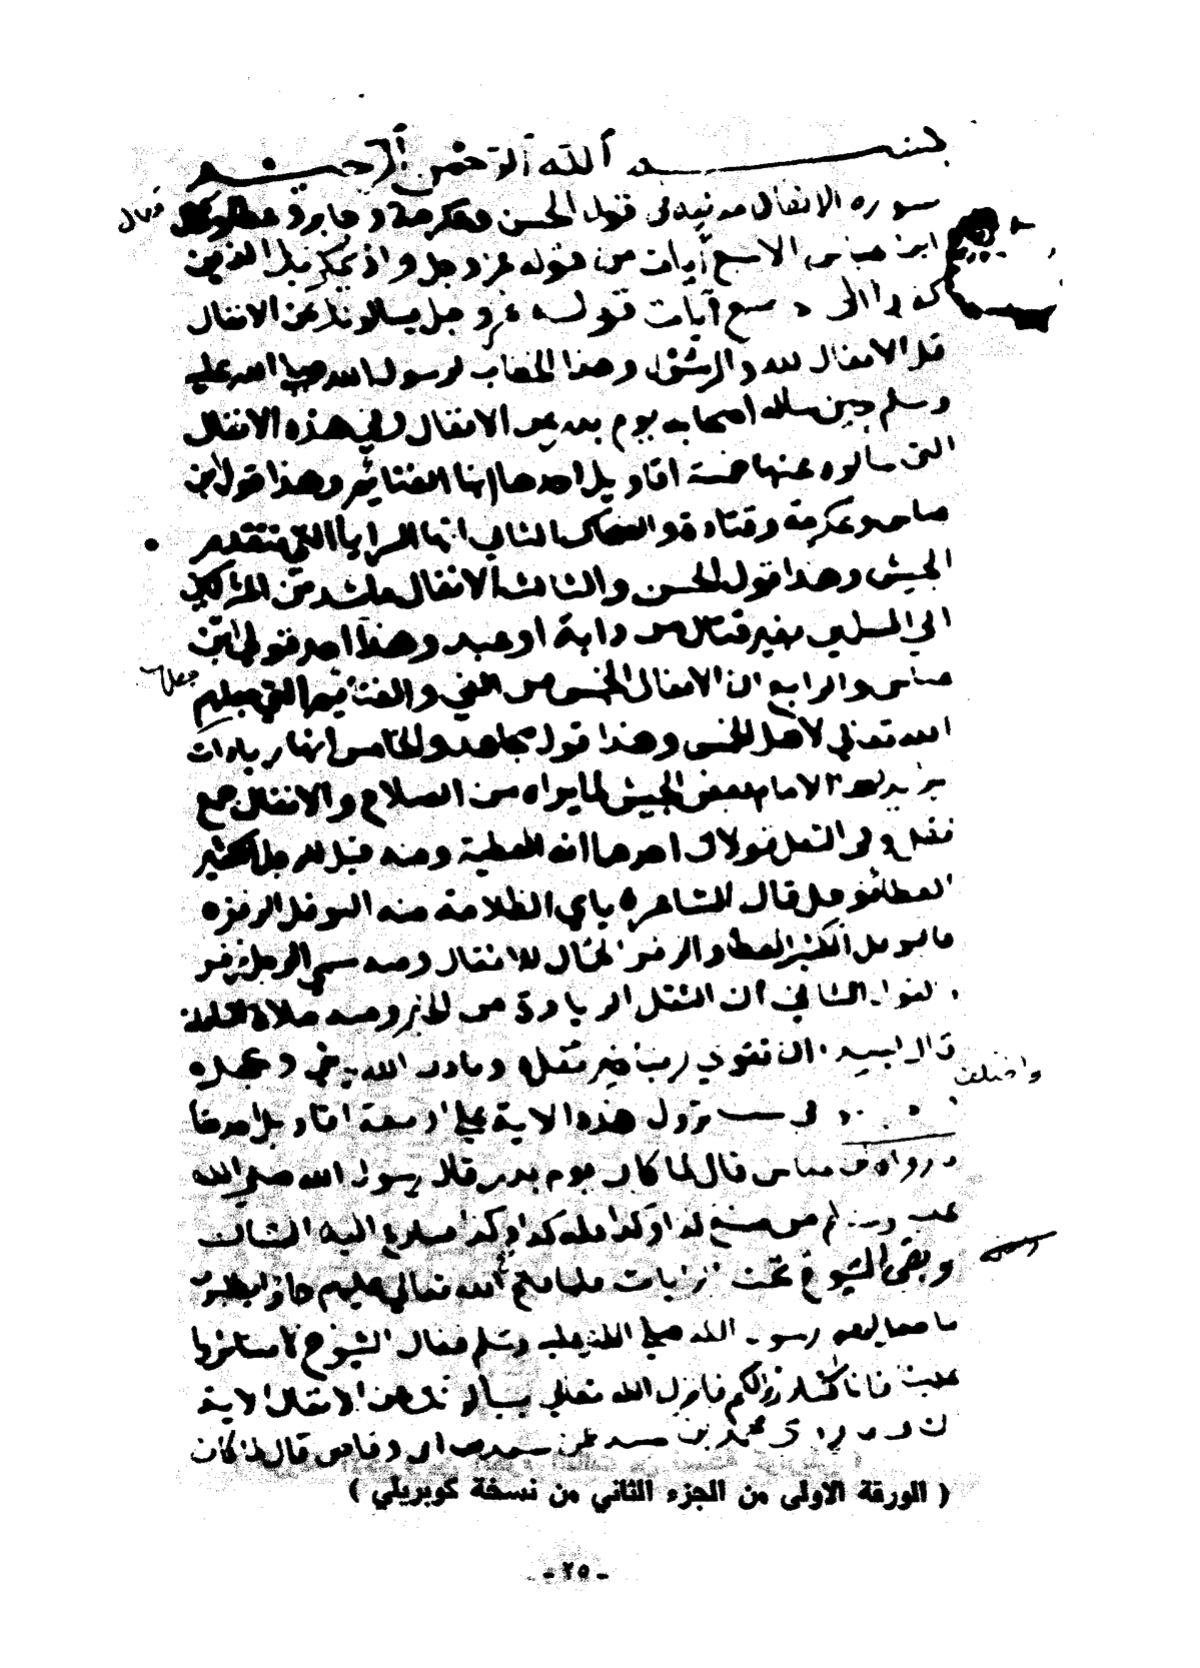 بسم الله الرحمن الرحيم
سورة الانفال مدنية في قول الحسن وعكرمة وجابر وعطا وقال
ابن عباس الا سبع آيات من قوله عز وجل واذ يمكر بك الذين
كفروا الى سبع آيات قوله عز وجل يسالونك عن الانفال
قل الانفال لله والرسول وهذا الخطاب لرسول الله صلى الله عليه
وسلم حين ساله اصحابه يوم بدر عن الانفال وفي هذه الانفال
التي سالوه عنها خمسة اقاويل احدها انها الغنائم وهذا قول ابن
عباس وعكرمة وقتادة والضحاك الثاني انها السرايا التي تتقدم
الجيش وهذا قول الحسن والثالث الانفال ما شد من المشركين
الى المسلمين بغير قتال من دابة او عبد وهذا احد قولي ابن
عباس والرابع ان الانفال الخمس من الفي والغنائم التي جعلهم
جعلها
الله تعالى لاهل الخمس وهذا قول مجاهد والخامس انها زيادات
يزيدها الامام بعض الجيش لما يراه من الصلاح والانفال جمع
نفل وفي النفل قولان احدهما انه العطية ومنه قيل للرجل الكثير
العطا نوفل قال الشاعر يابى الظلامة منه النوفل الزفر
فالنوفل الكثير العطا والزفر الحمال للاثقال ومنه سمي الرجل زفر
والقول الثاني ان النفل الزيادة من الخير ومنه صلاة النافلة
قال لبيد ان تقوى ربنا خير نفل وباذن الله ريثي وعجل
واختلف
في سبب نزول هذه الاية على اربعة اقاويل احدها
ما رواه ابن عباس قال لما كان يوم بدر قال رسول الله صلى الله
عليه وسلم من صنع كذا وكذا فله كذا وكذا فسارع اليه الشبان
وبقي الشيوخ تحت الرايات فلما فتح الله تعالى عليهم جاوا يطلبون
ما جعل لهم رسول الله صلى الله عليه وسلم فقال الشيوخ لا تستاثروا
علينا فانا كنا ردا لكم فانزل الله تعالى يسالونك عن الانفال الاية
محمد بن عن سعد بن ابي وقاص قال لما كان
( الورقة الاولى من الجزء الثاني من نسخة كوبريلي )
- ٢٥ -